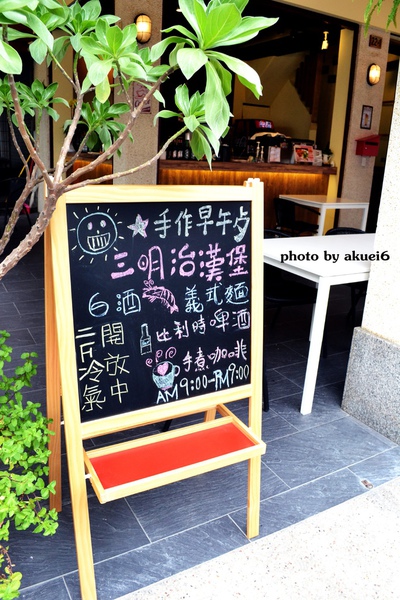 手作早午夕
三明治漢堡
白酒 義式麵
比利時啤酒
手煮咖啡
AM9:00-PM9:00
二F冷氣
開放中
photo by akuei6